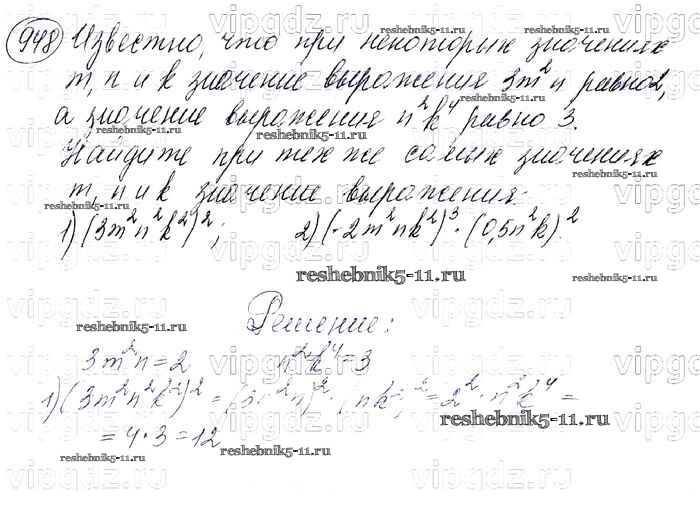 948 Известно, что при некоторых значениях
m, n и k значение выражения 3m²n равно 2,
а значение выражения n²k⁴ равно 3.
Найдите при тех же самых значениях
m, n и k значение выражения:
1) (3m²n²k²)²; 2) (-2m²nk²)³·(0,5n²k)².
reshebnik5-11.ru
Решение:
3m²n=2 n²k⁴=3
1) (3m²n²k²)² = (3m²n)²·(nk²)²=2²·n²k⁴=
=4·3=12
vipgdz.ru